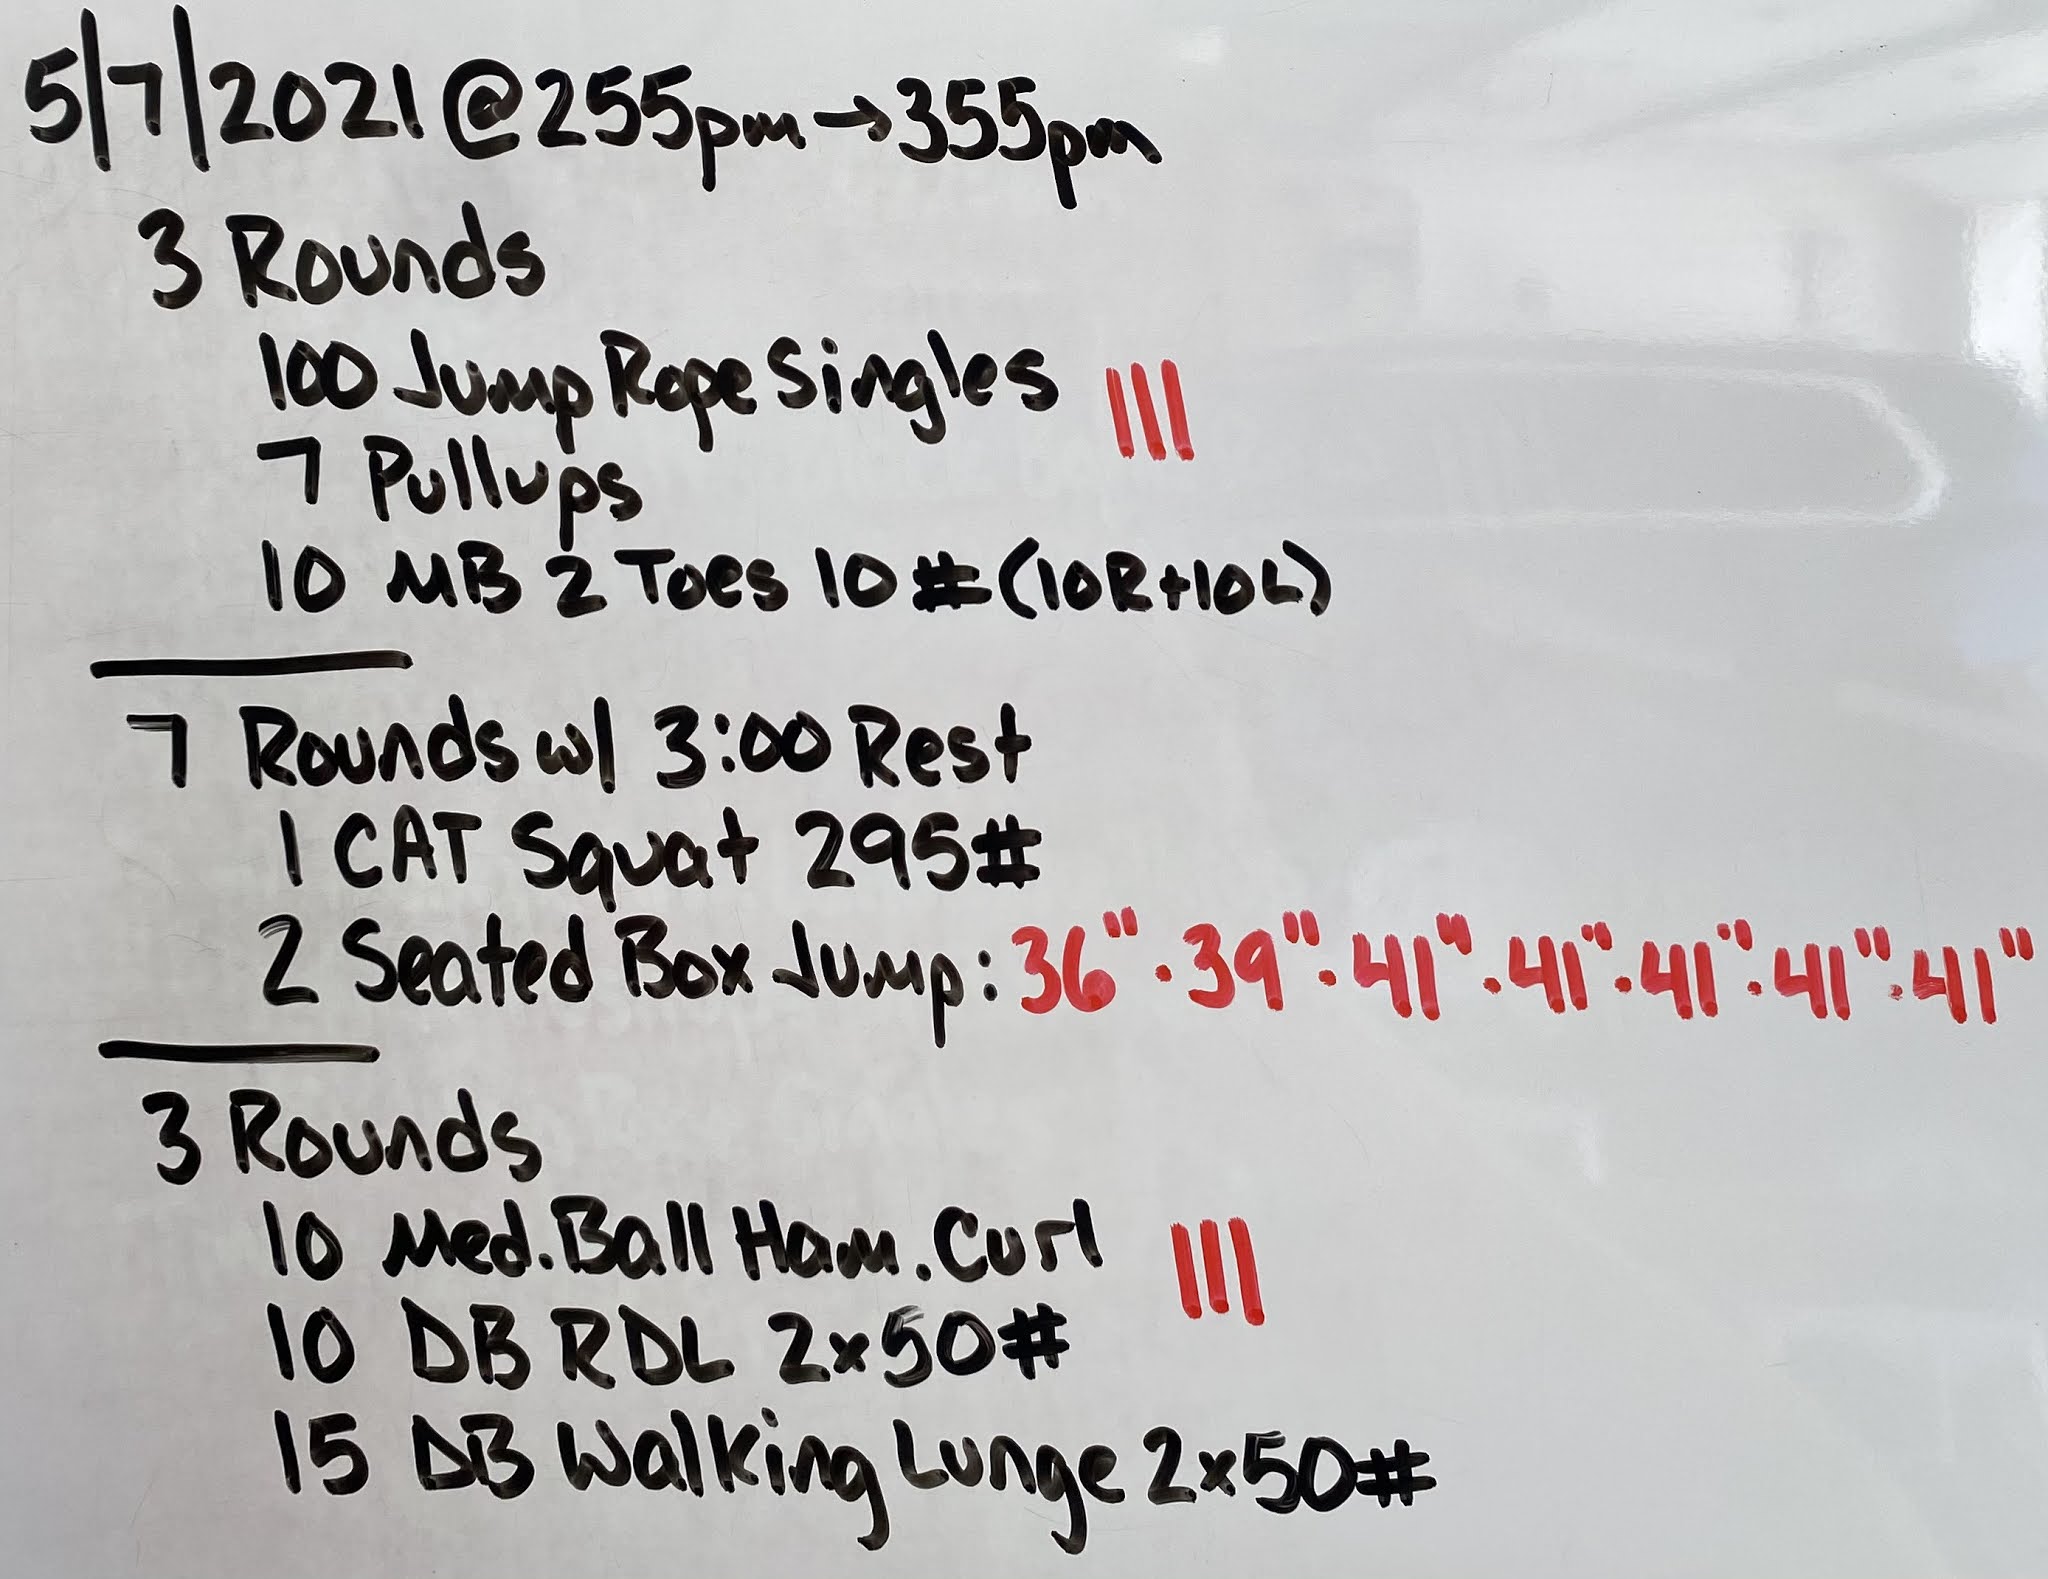 5/7/2021 @ 255pm → 355pm
3 Rounds
100 Jump Rope Singles |||
7 Pullups
10 MB 2 Toes 10 # (10R+10L)
7 Rounds w/ 3:00 Rest
1 CAT Squat 295#
2 Seated Box Jump: 36" · 39" · 41" · 41" · 41" · 41" · 41"
3 Rounds
10 Med. Ball Ham. Curl |||
10 DB RDL 2x50#
15 DB Walking Lunge 2x50#